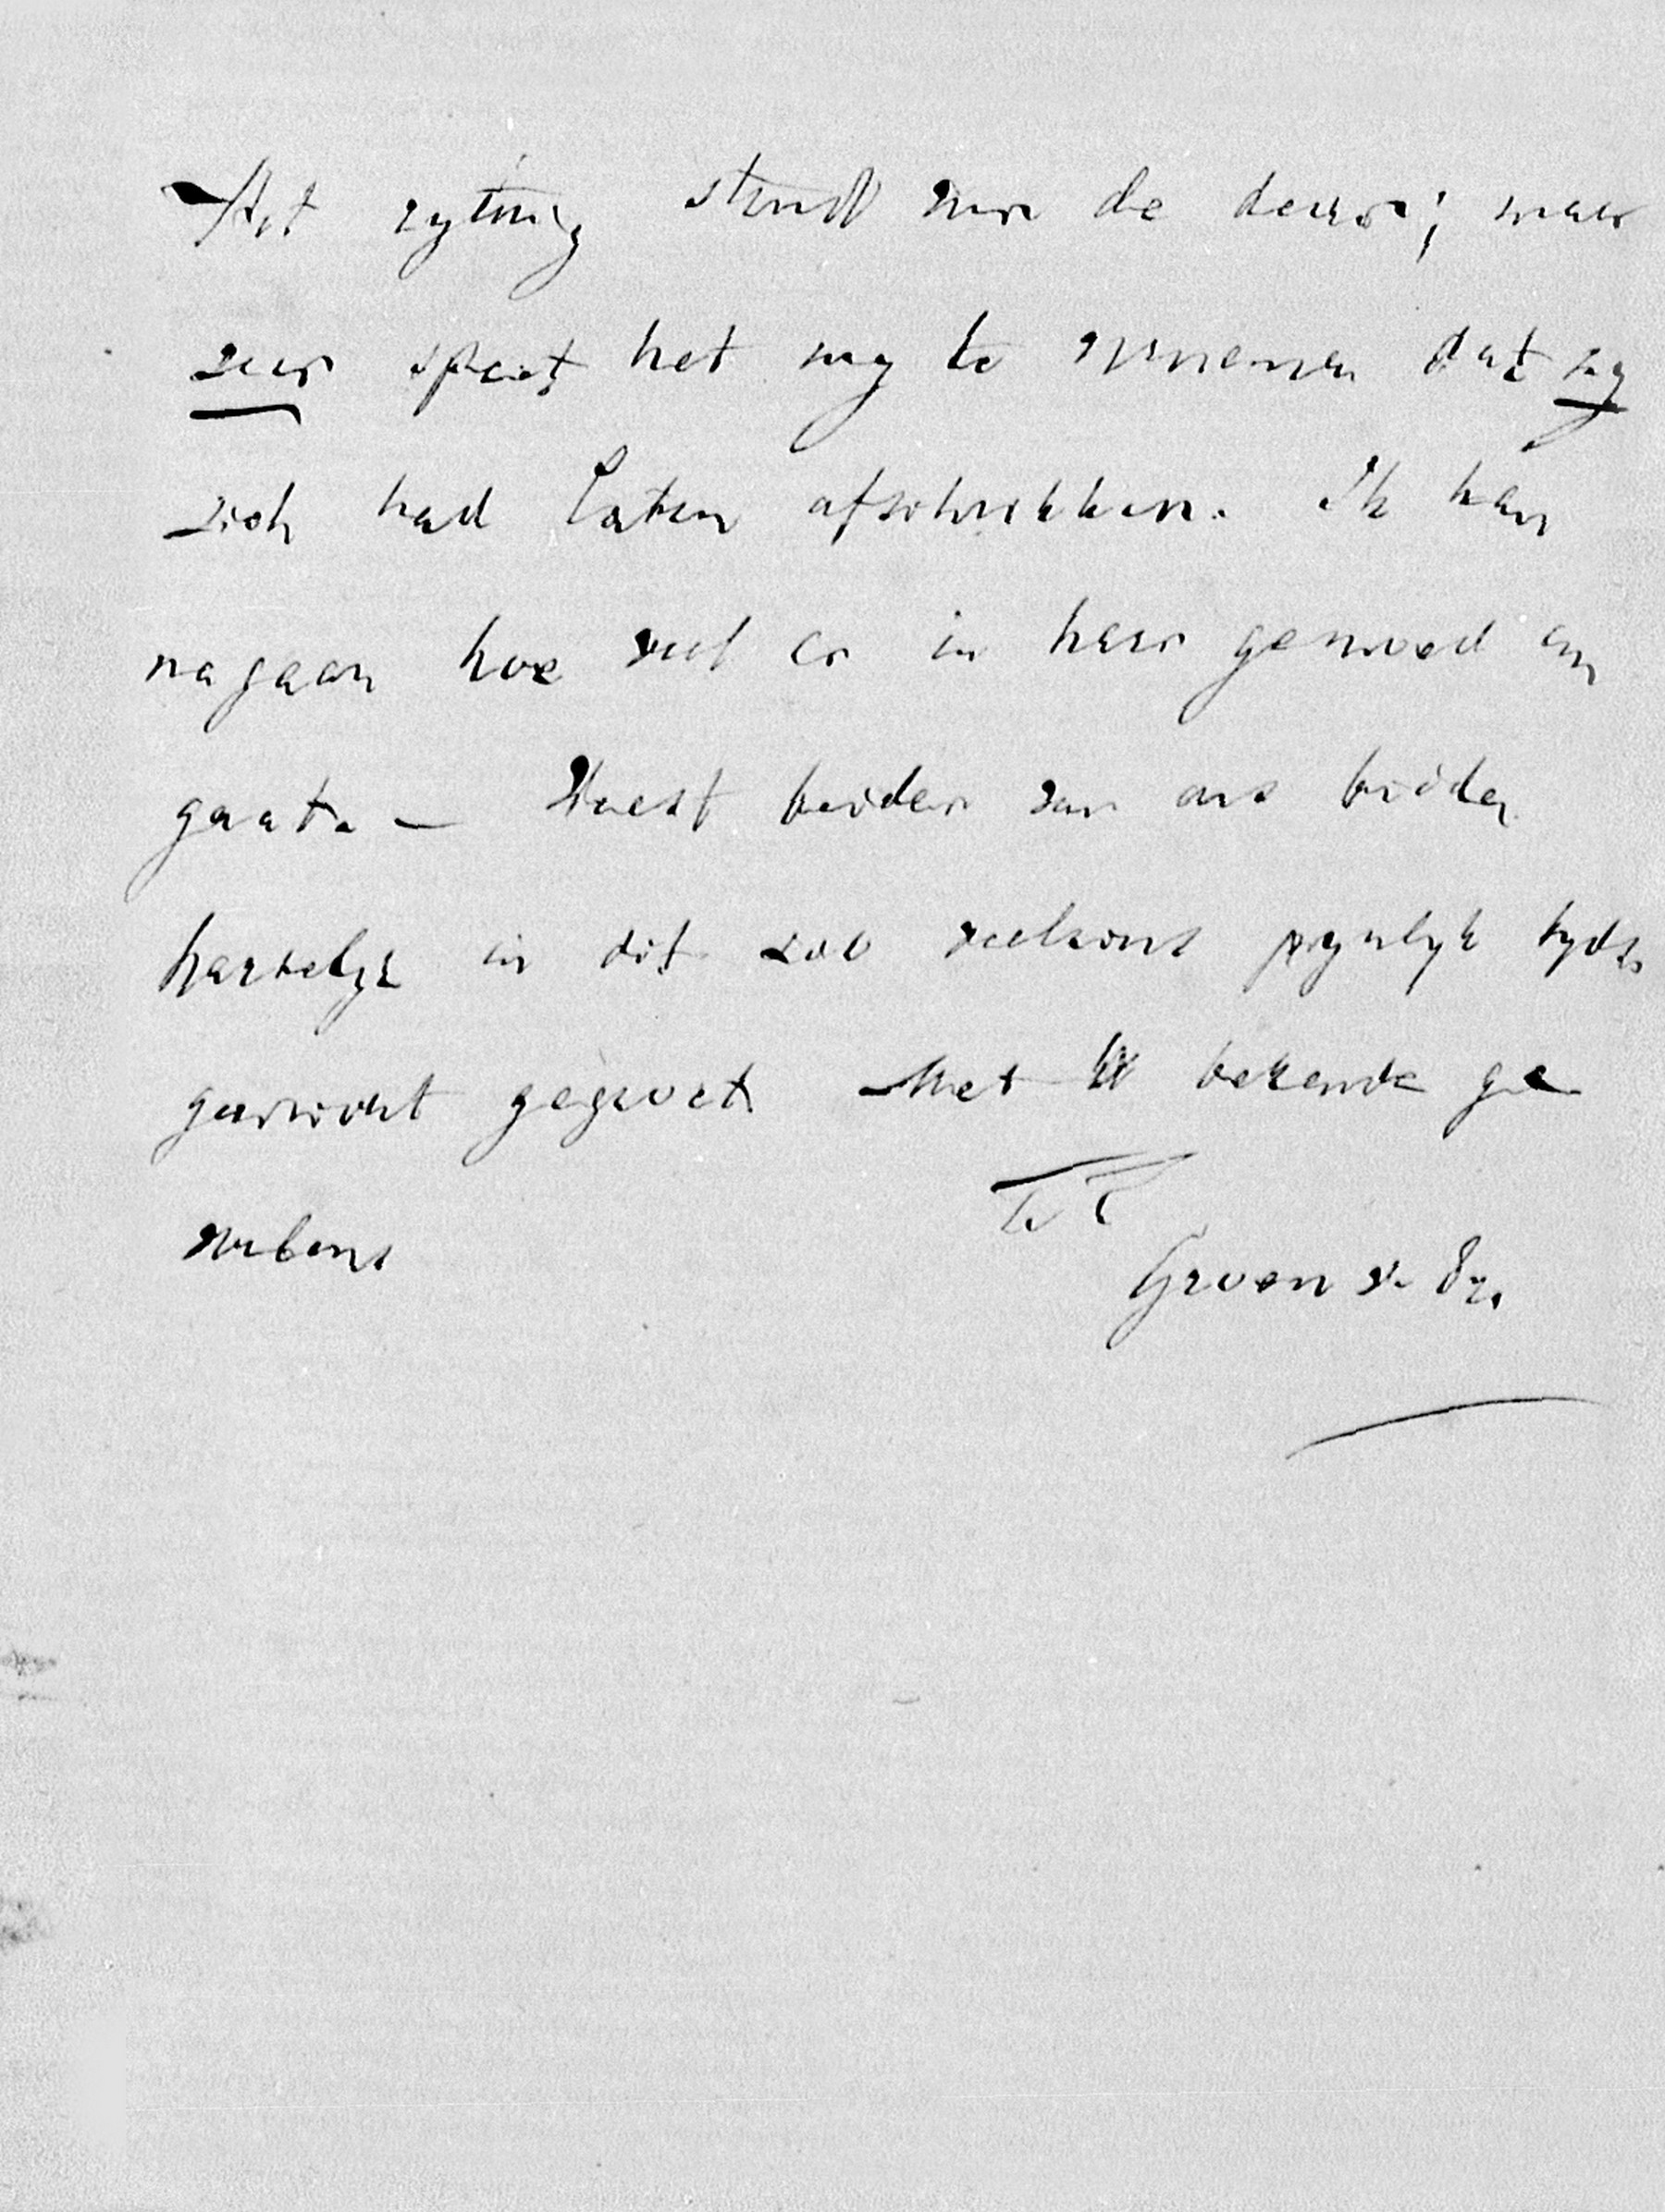 Het rytuig stond voor de deur; maar
zeer speet het my te vernemen dat zy
zich had laten afschrikken. Ik kan
nagaan hoe veel er in haar gemoed om
gaat. — Weest beiden van ons beiden
hartelyk in dit zoo veelzins pynlyk tyds
gewricht gegroet. Met bekende ge
voelens
TT
Groen v. Pr.